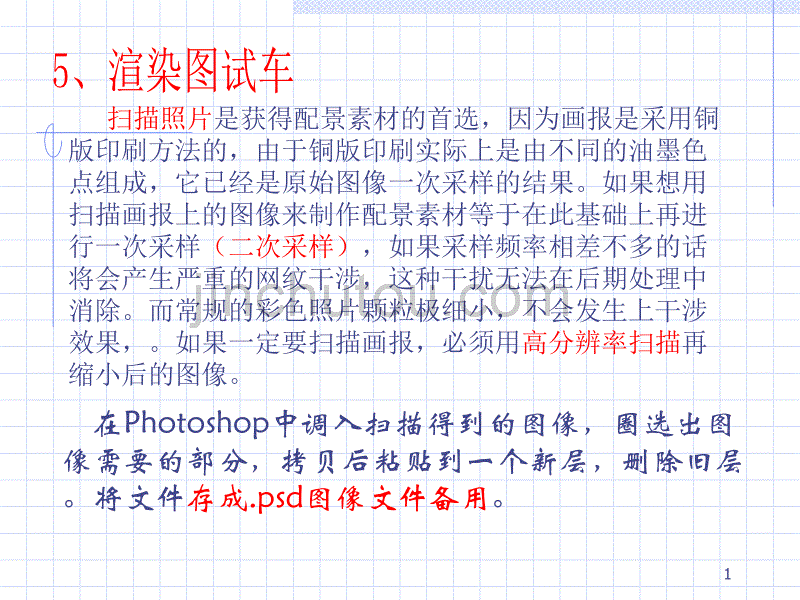 5、渲染图试车
扫描照片是获得配景素材的首选，因为画报是采用铜
版印刷方法的，由于铜版印刷实际上是由不同的油墨色
点组成，它已经是原始图像一次采样的结果。如果想用
扫描画报上的图像来制作配景素材等于在此基础上再进
行一次采样（二次采样），如果采样频率相差不多的话
将会产生严重的网纹干涉，这种干扰无法在后期处理中
消除。而常规的彩色照片颗粒极细小，不会发生上干涉
效果，。如果一定要扫描画报，必须用高分辨率扫描再
缩小后的图像。
在Photoshop中调入扫描得到的图像，圈选出图
像需要的部分，拷贝后粘贴到一个新层，删除旧层
。将文件存成.psd图像文件备用。
jinchutou.com
1